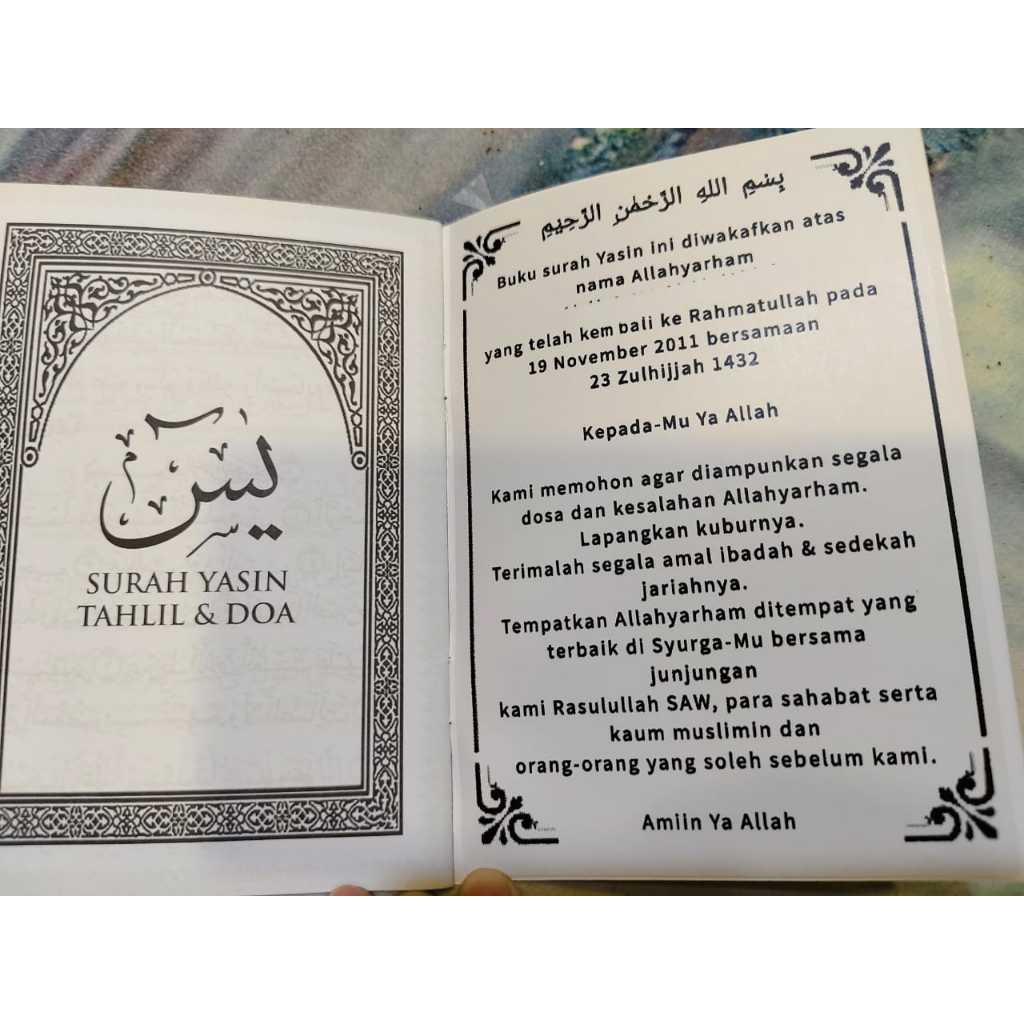 يسٓ
SURAH YASIN
TAHLIL & DOA
بِسْمِ اللهِ الرَّحْمٰنِ الرَّحِيْمِ
Buku surah Yasin ini diwakafkan atas
nama Allahyarham
yang telah kembali ke Rahmatullah pada
19 November 2011 bersamaan
23 Zulhijjah 1432
Kepada-Mu Ya Allah
Kami memohon agar diampunkan segala
dosa dan kesalahan Allahyarham.
Lapangkan kuburnya.
Terimalah segala amal ibadah & sedekah
jariahnya.
Tempatkan Allahyarham ditempat yang
terbaik di Syurga-Mu bersama
junjungan
kami Rasulullah SAW, para sahabat serta
kaum muslimin dan
orang-orang yang soleh sebelum kami.
Amiin Ya Allah